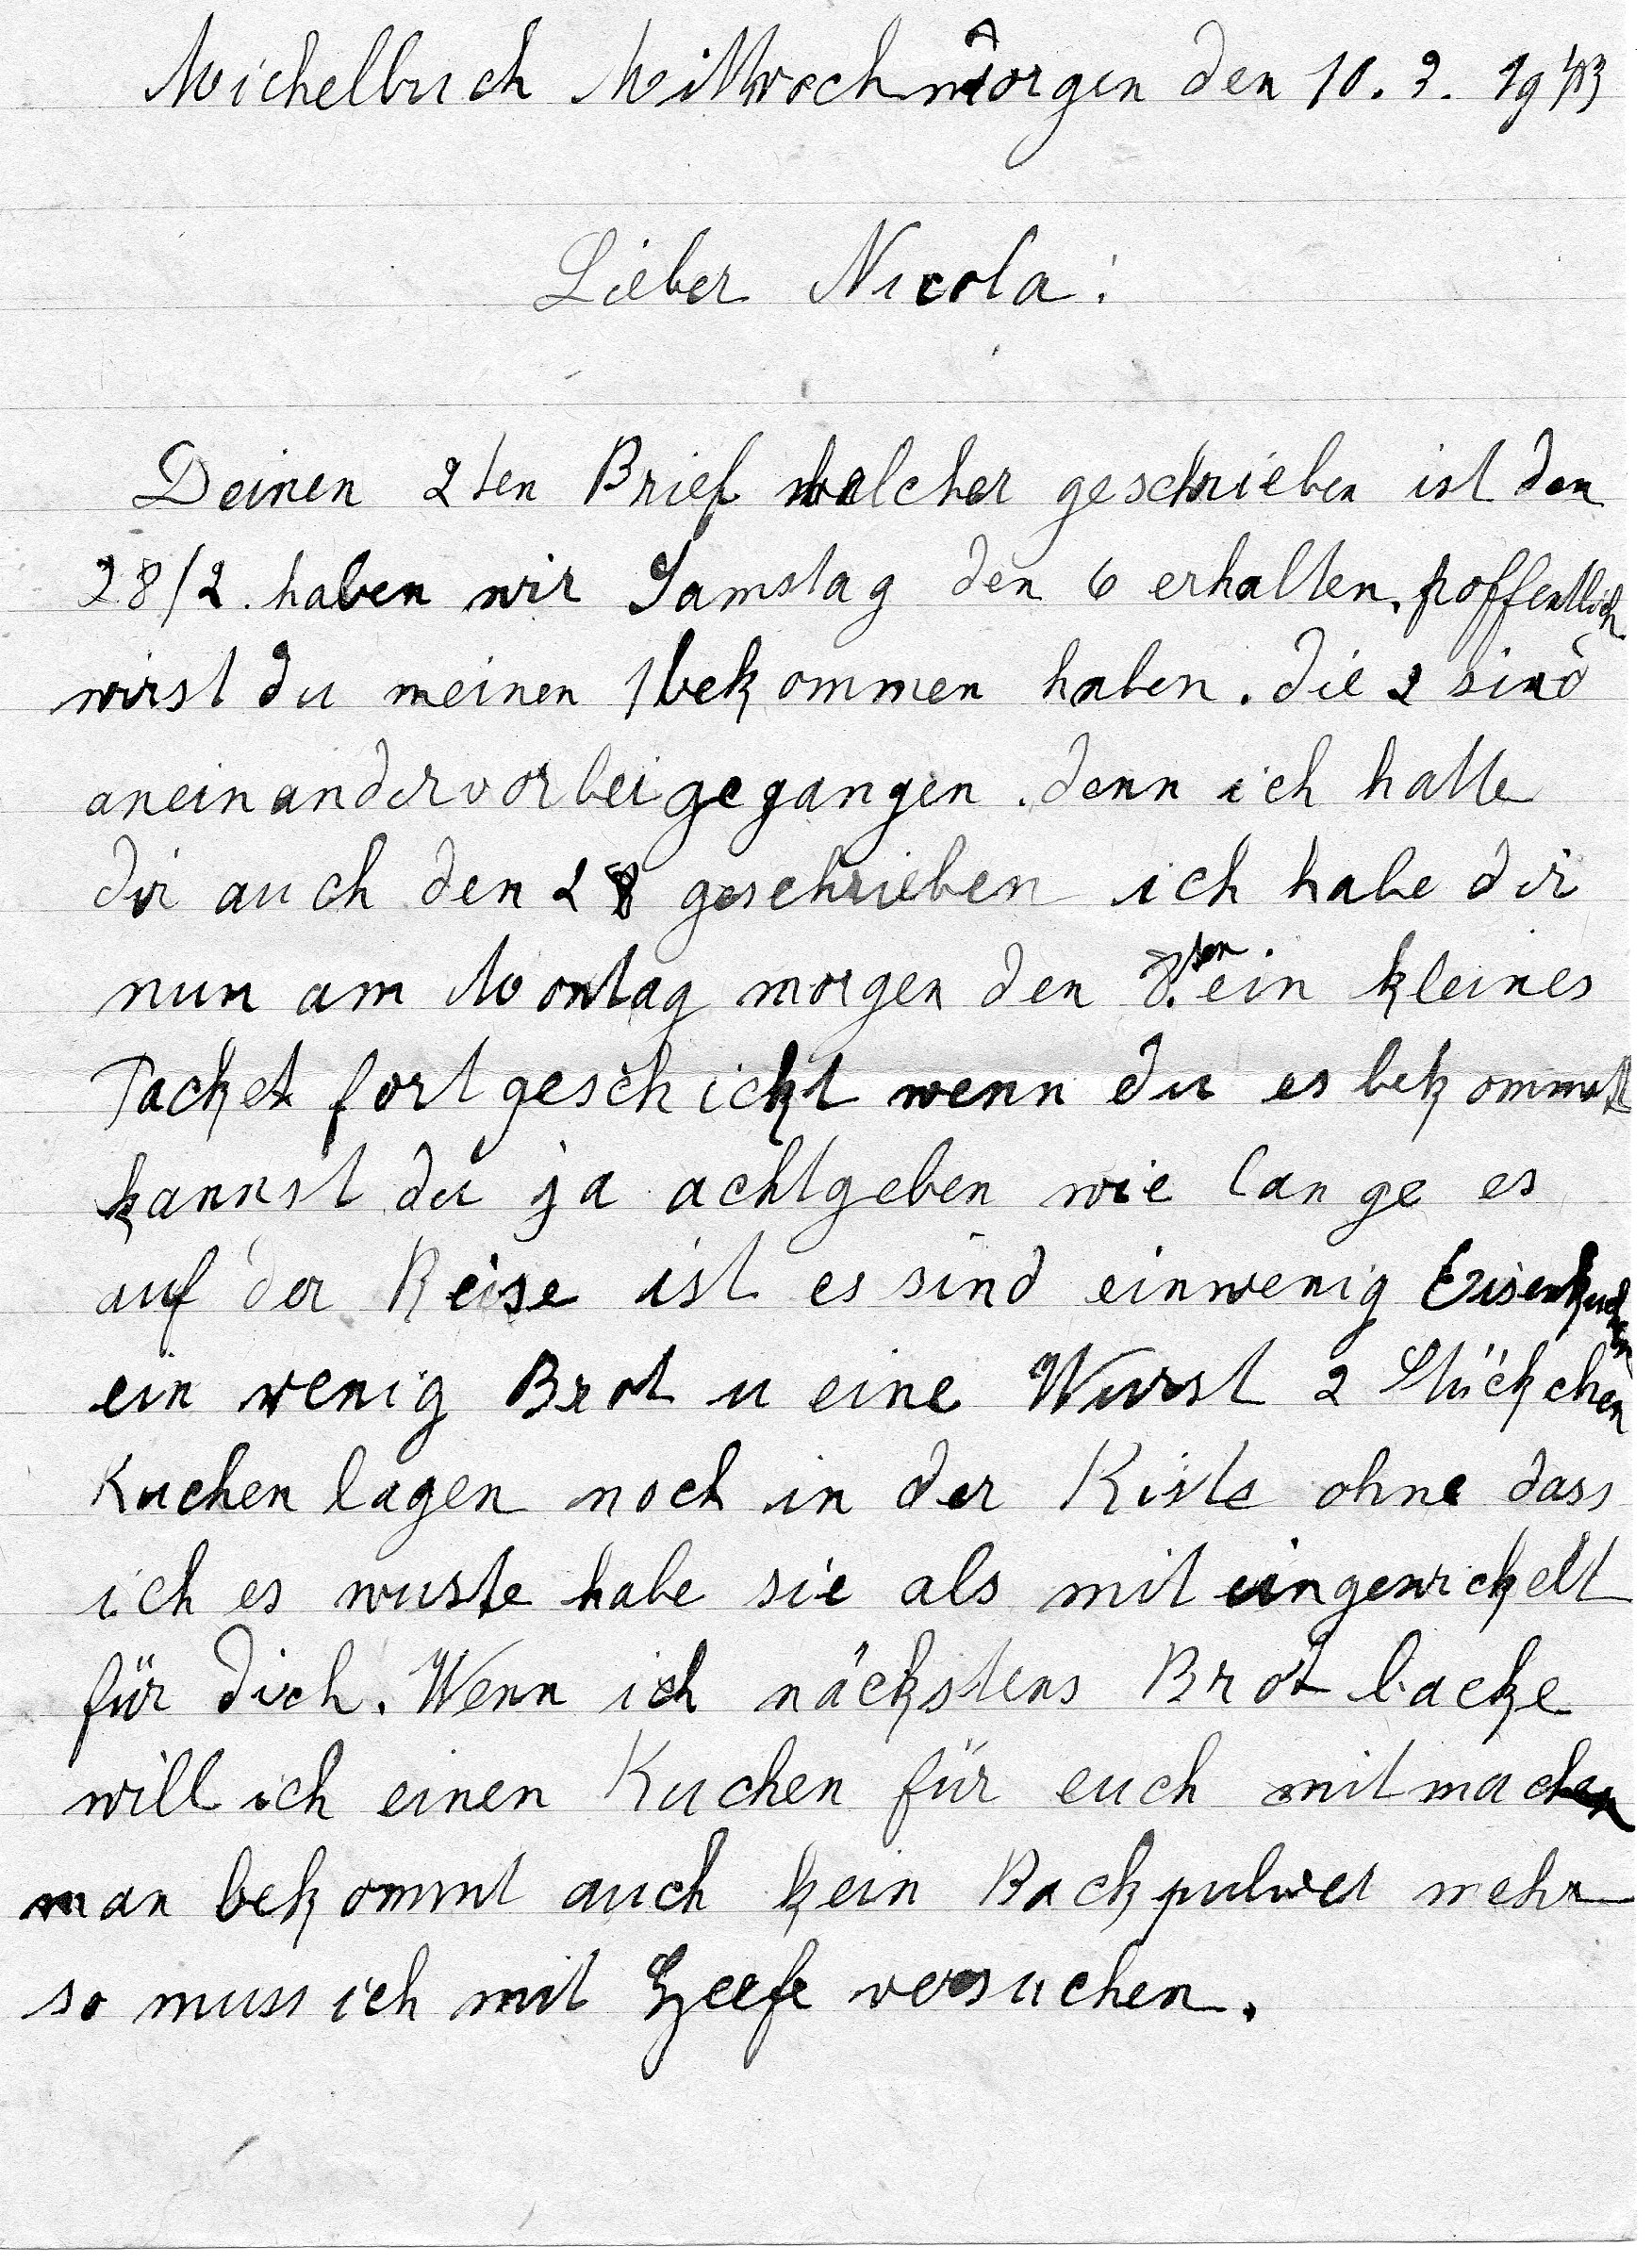 Michelbuch Mittwochmorgen den 10. 3. 1943
Lieber Nicola:
Deinen 2ten Brief welcher geschrieben ist den
28/2. haben wir Samstag den 6 erhalten, hoffentlich
wirst du meinen 1 bekommen haben. die 2 sind
aneinandervorbeigegangen. denn ich hatte
dir auch den 28 geschrieben ich habe dir
nun am Montag morgen den 8.ten ein kleines
Packet fortgeschickt wenn du es bekommst
kannst du ja achtgeben wie lange es
auf der Reise ist es sind einwenig Eisenkuchen
ein wenig Brot u eine Wurst 2 Stückchen
Kuchen lagen noch in der Kiste ohne dass
ich es wuste habe sie als mit eingewickelt
für dich. Wenn ich näckstens Brot backe
will ich einen Kuchen für euch mitmachen
man bekommt auch kein Backpulver mehr
so muss ich mit Heefe versuchen.